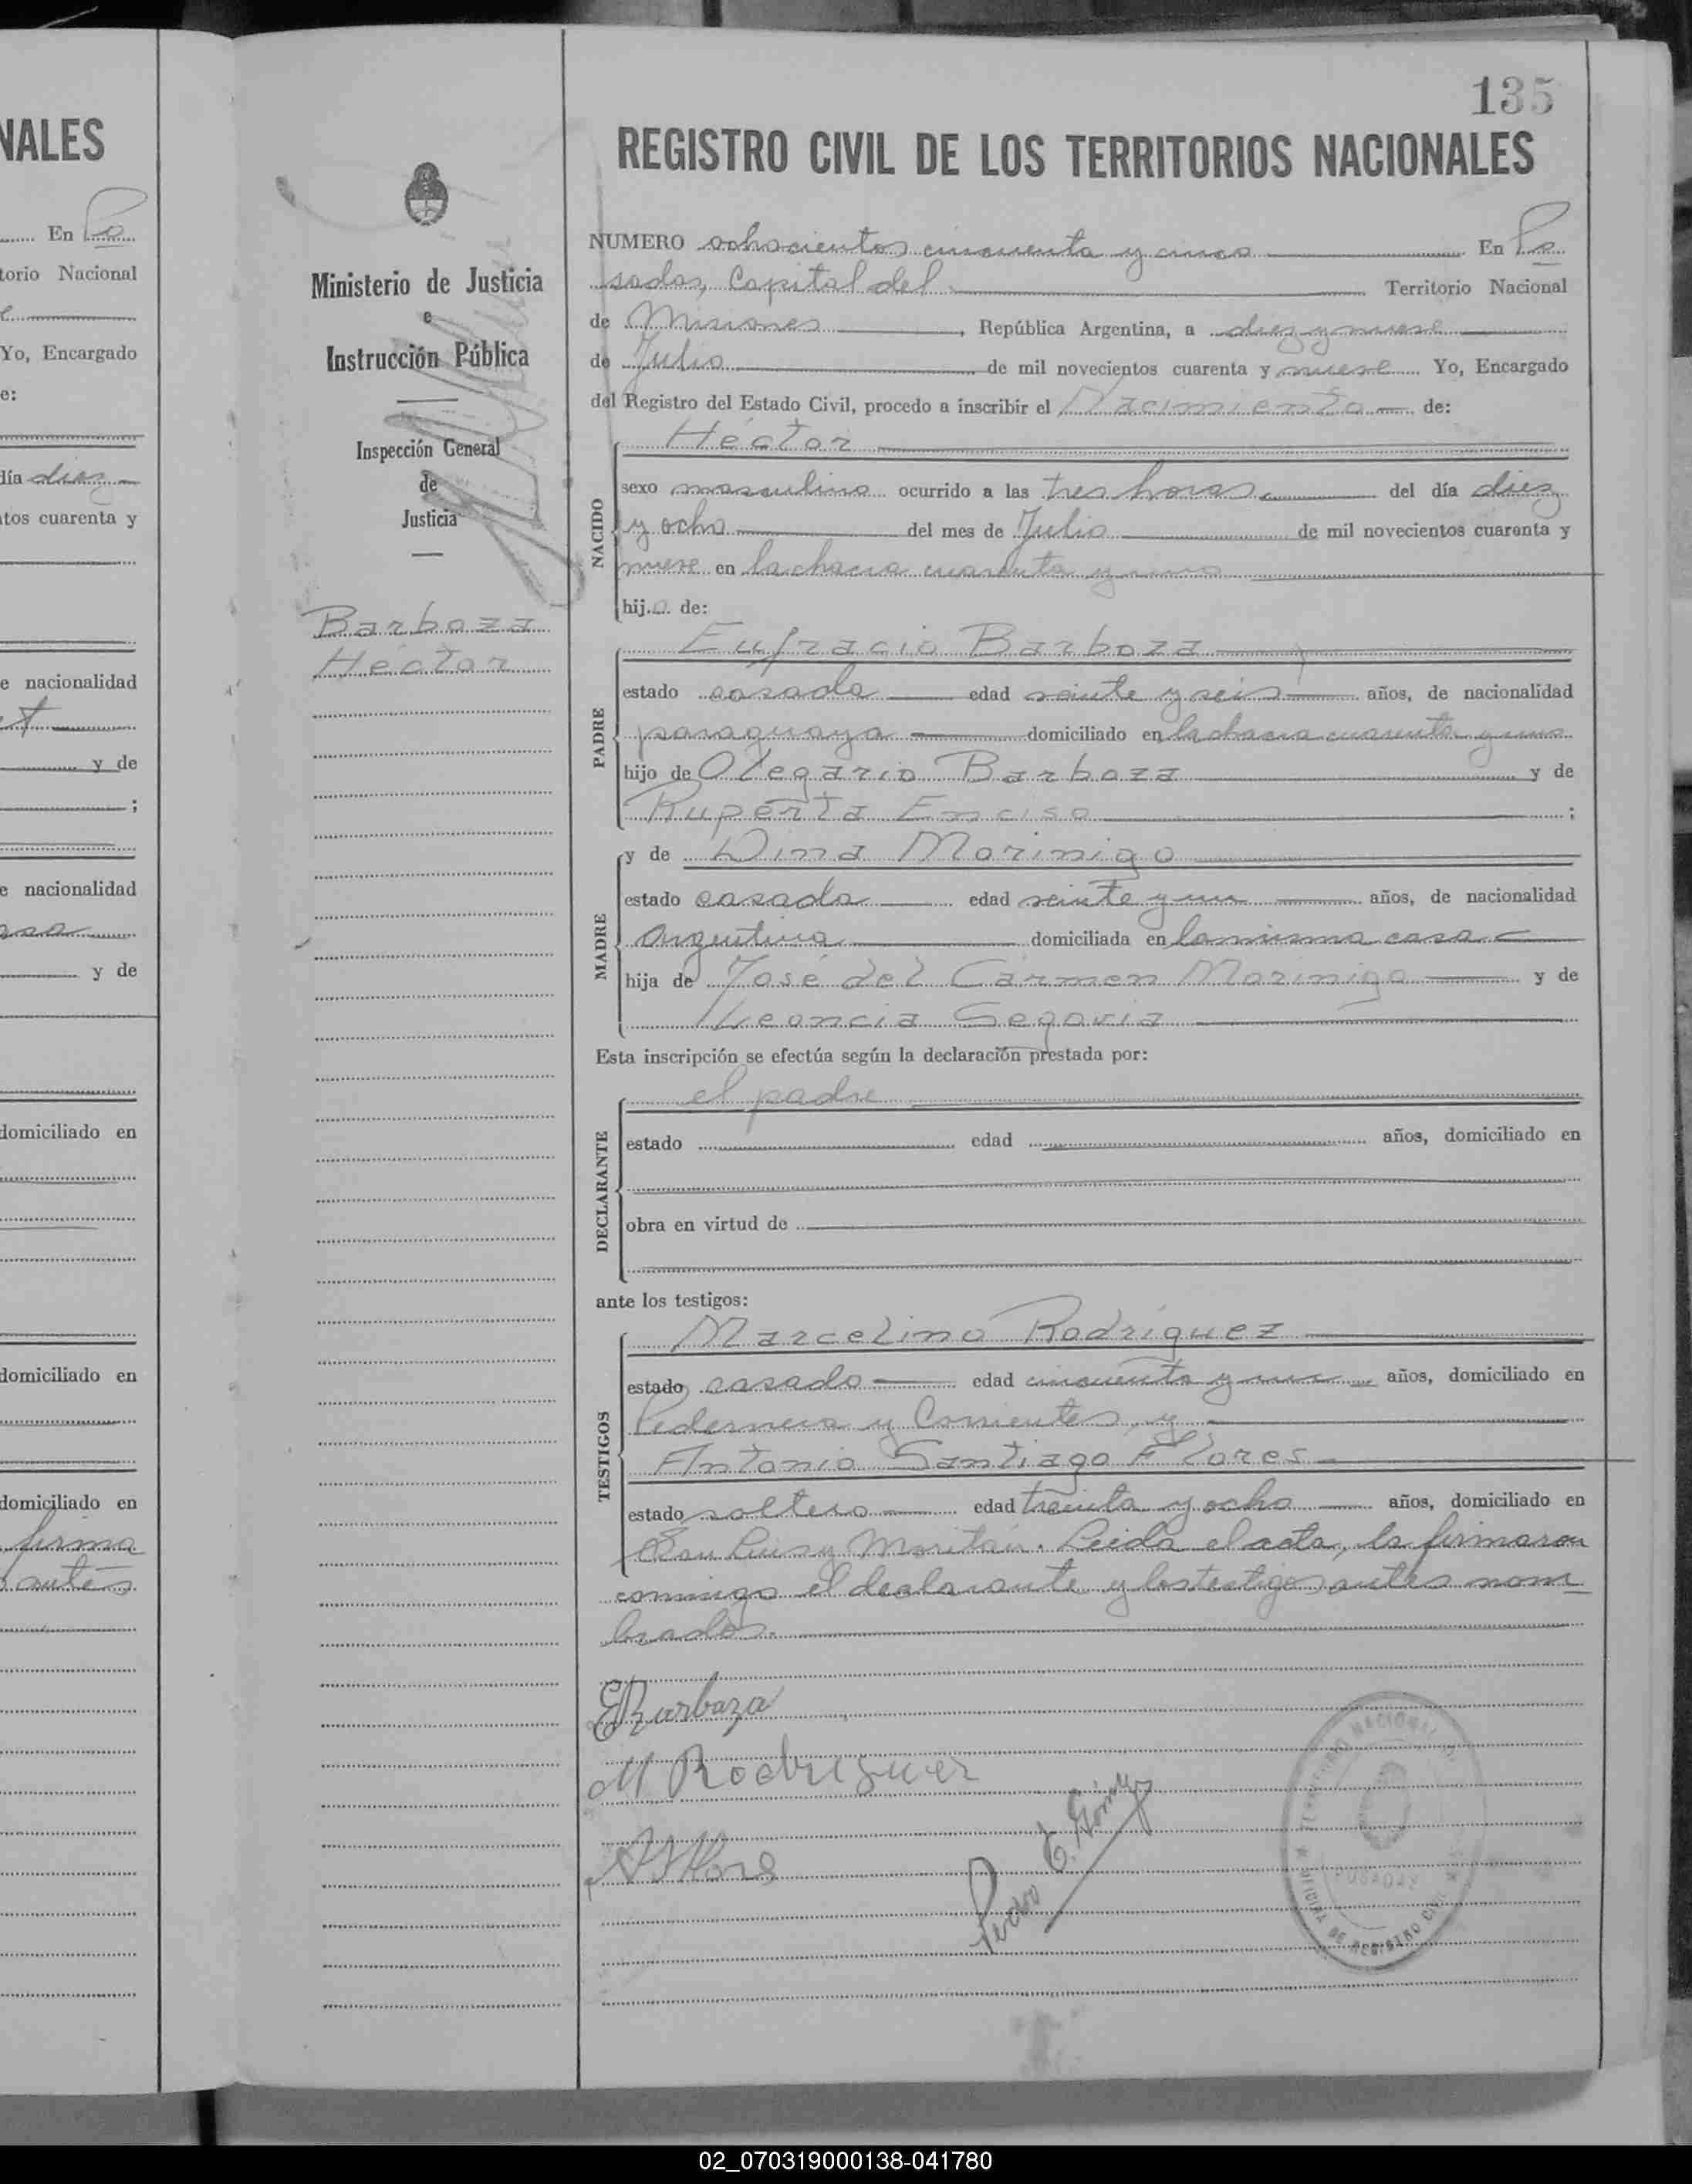 NALES
En Po
torio Nacional
Yo, Encargado
e:
día diez
tos cuarenta y
e nacionalidad
y de
;
e nacionalidad
y de
domiciliado en
domiciliado en
domiciliado en
firma
antes
Ministerio de Justicia
e
Instrucción Pública
Inspección General
de
Justicia
Barboza
Héctor
135
REGISTRO CIVIL DE LOS TERRITORIOS NACIONALES
NUMERO ochocientos cincuenta y cinco En Po
sadas, Capital del Territorio Nacional
de Misiones, República Argentina, a diez y nueve
de Julio de mil novecientos cuarenta y nueve Yo, Encargado
del Registro del Estado Civil, procedo a inscribir el Nacimiento de:
Héctor
NACIDO
sexo masculino ocurrido a las tres horas del día diez
y ocho del mes de Julio de mil novecientos cuarenta y
nueve en la chacra cuarenta y uno
hijo de:
Eufracio Barboza
PADRE
estado casado edad veinte y seis años, de nacionalidad
paraguaya domiciliado en la chacra cuarenta y uno
hijo de Olegario Barboza y de
Ruperta Enciso ;
y de Dina Morinigo
MADRE
estado casada edad veinte y un años, de nacionalidad
Argentina domiciliada en la misma casa
hija de José del Carmen Morinigo y de
Leoncia Segovia
Esta inscripción se efectúa según la declaración prestada por:
el padre
DECLARANTE
estado edad años, domiciliado en
obra en virtud de
ante los testigos:
Marcelino Rodríguez
TESTIGOS
estado casado edad cincuenta y un años, domiciliado en
Pedernera y Corrientes, y
Antonio Santiago Flores
estado soltero edad treinta y ocho años, domiciliado en
San Luis y Moritán. Leída el acta, la firmaron
conmigo el declarante y los testigos antes nom
brados.
E Barboza
M Rodriguez
A S Flores
Pedro E. Gómez
OFICINA DE REGISTRO CIVIL
POSADAS
02_070319000138-041780